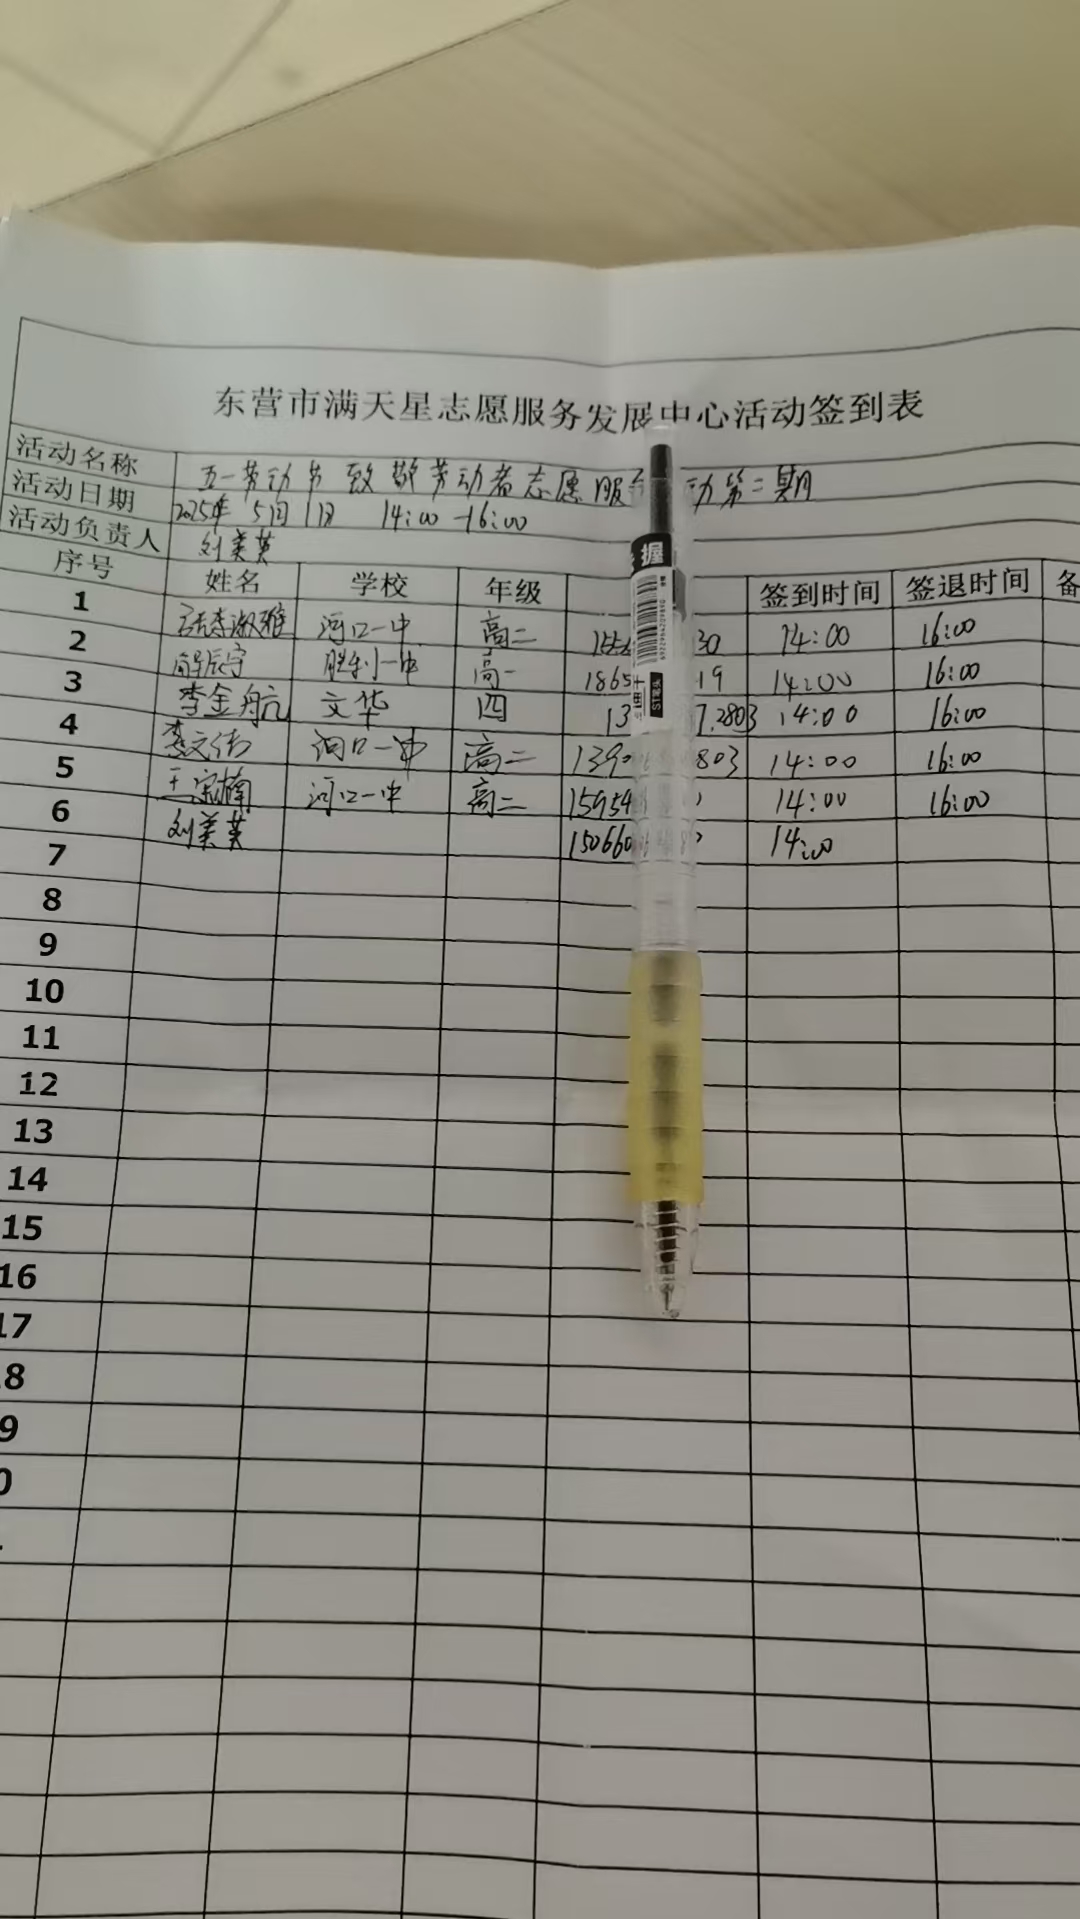 东营市满天星志愿服务发展中心活动签到表
活动名称 五一劳动节 致敬劳动者志愿服 动第二期
活动日期 2025年 5月1日 14:00-16:00
活动负责人 刘美英
序号 姓名 学校 年级 签到时间 签退时间 备
1 河口一中 高二 30 14:00 16:00
2 解辰宇 胜利一中 高一 1865 19 14:00 16:00
3 李金航 文华 四 13 7.2803 14:00 16:00
4 李文倩 河口一中 高二 1390 803 14:00 16:00
5 王宗楠 河口一中 高二 15954 14:00 16:00
6 刘美英 150660 14:00
7
8
9
10
11
12
13
14
15
16
17
18
9
0